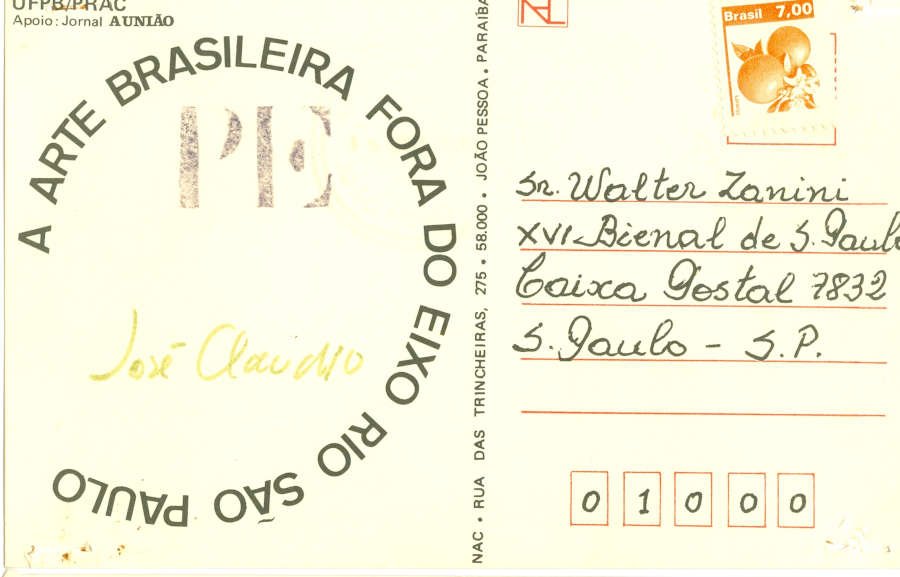 UFPB/PRAC
Apoio: Jornal A UNIÃO
A ARTE BRASILEIRA FORA DO EIXO RIO SÃO PAULO
PE
José Claudio
NAC • RUA DAS TRINCHEIRAS, 275 • 58.000 • JOÃO PESSOA • PARAIBA
Brasil 7,00
Sr. Walter Zanini
XVI-Bienal de S. Paulo
Caixa Postal 7832
S. Paulo - S.P.
01000